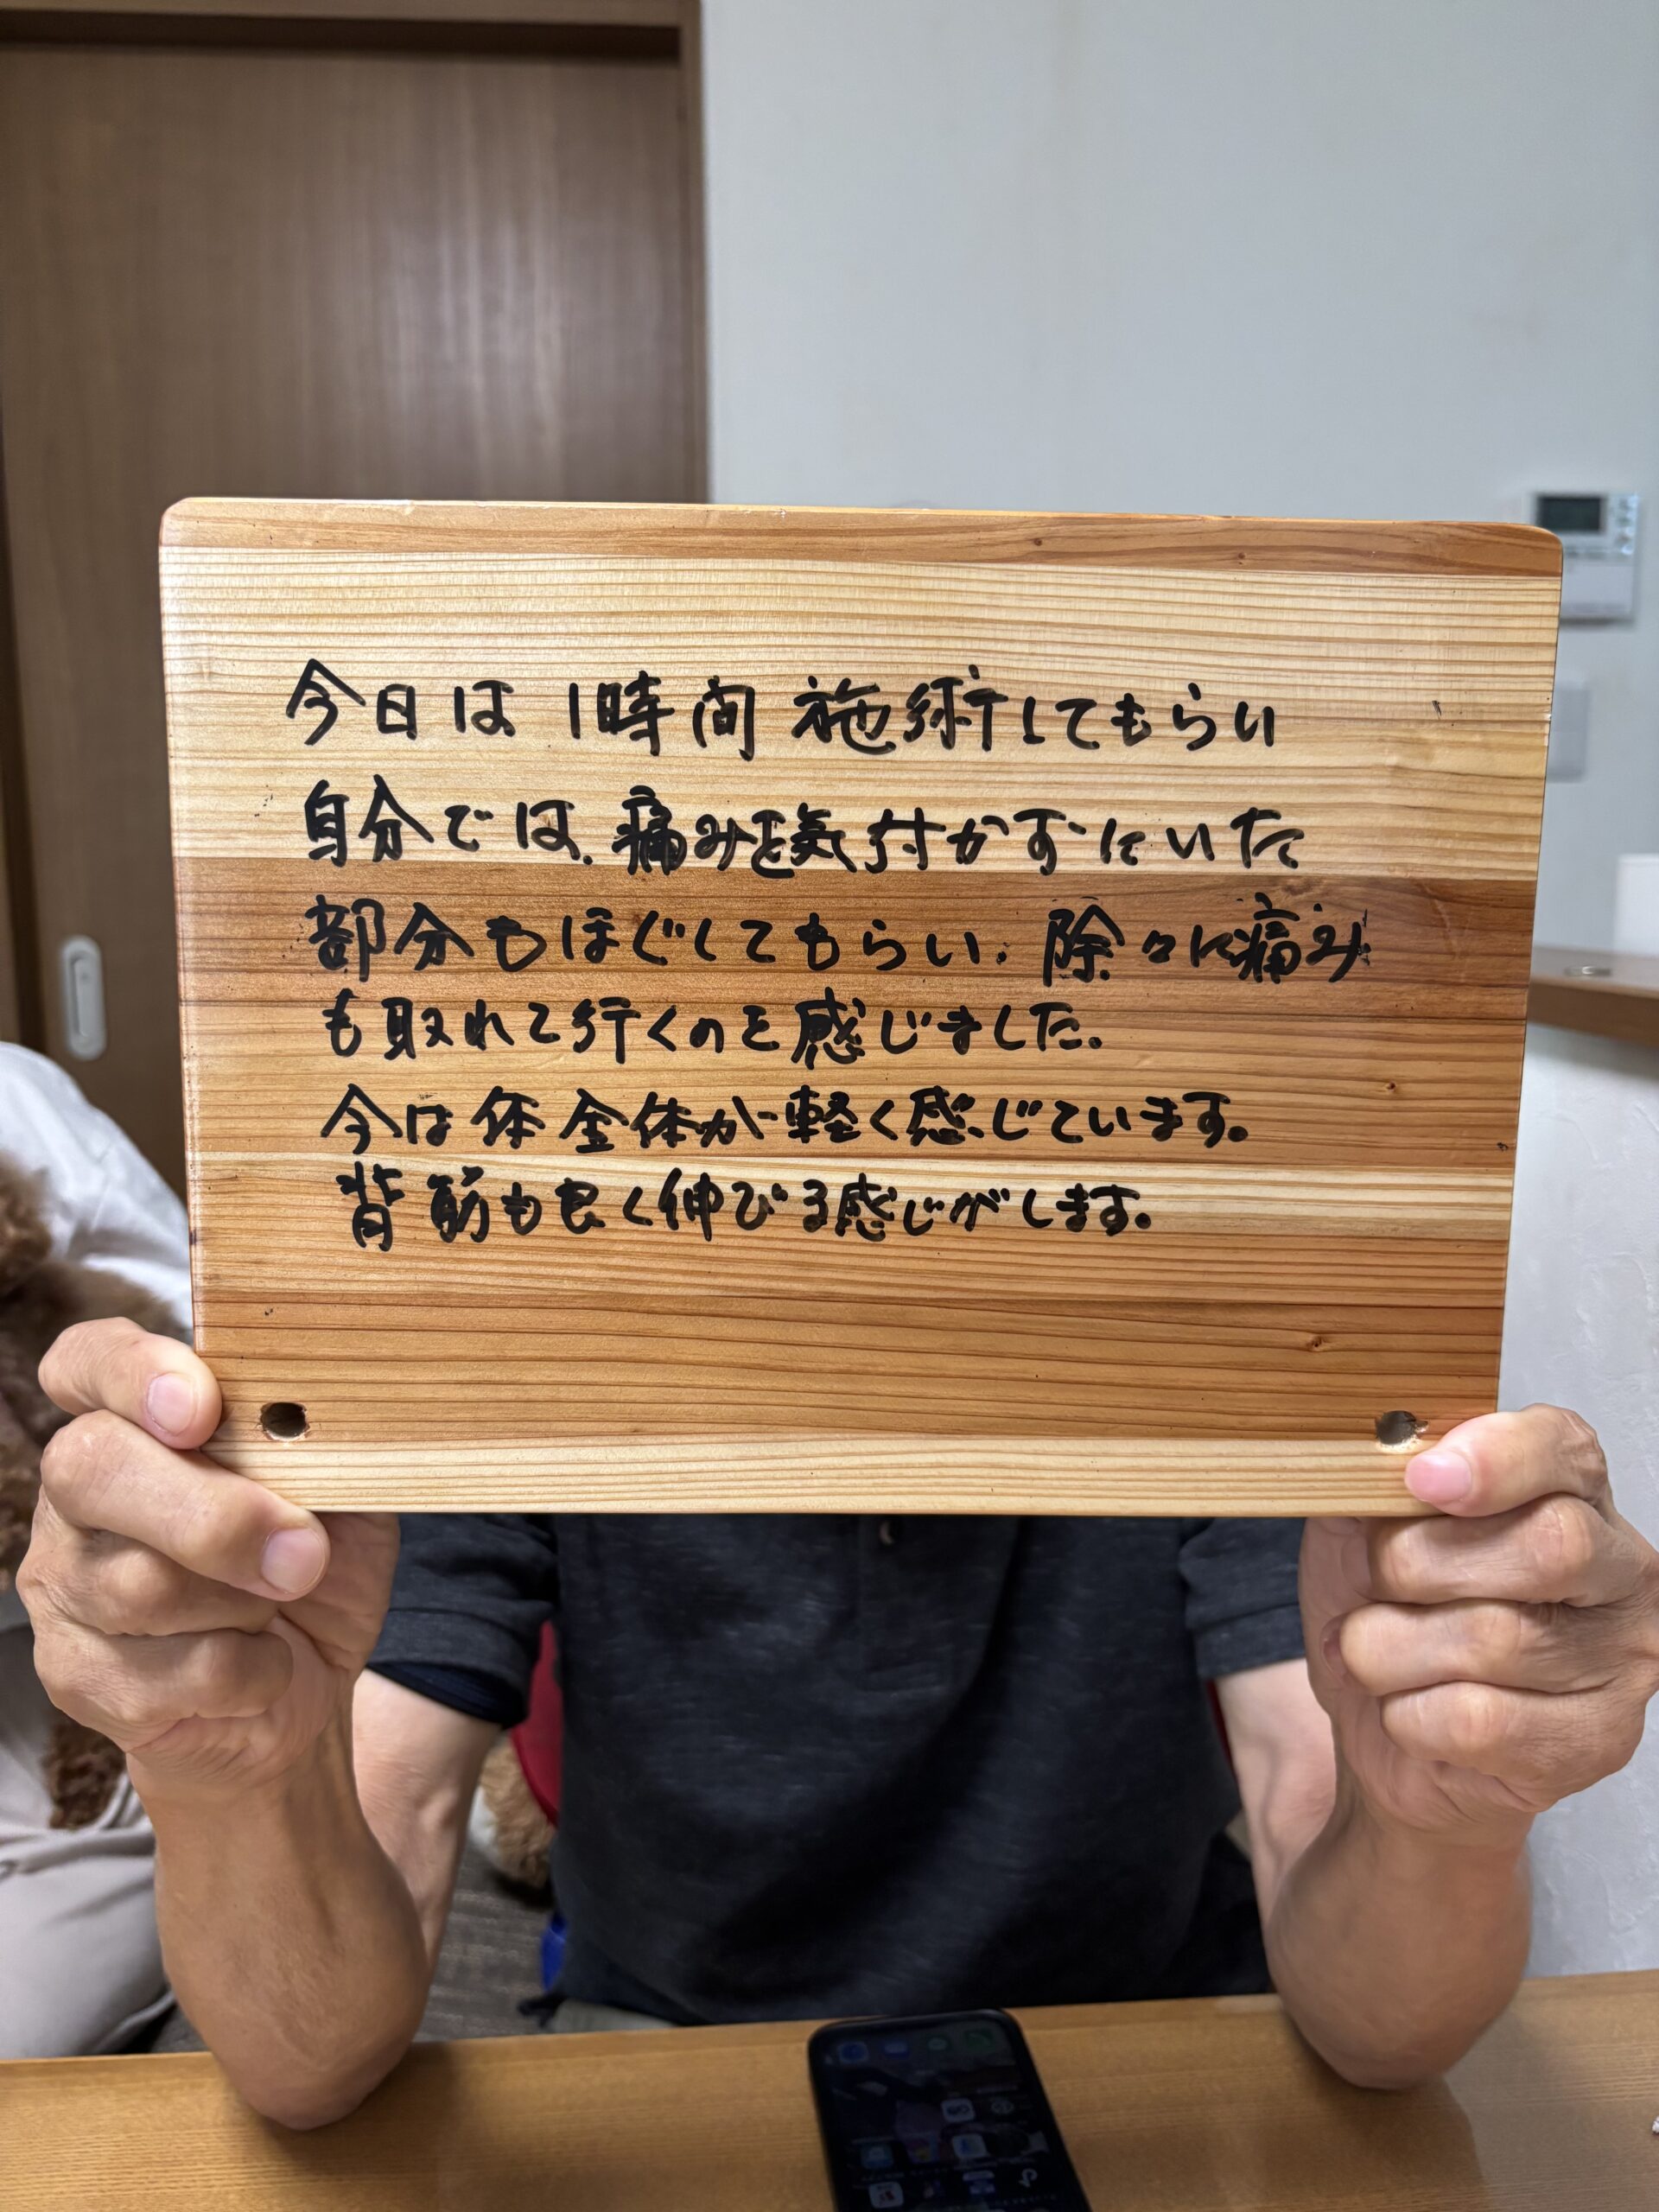 今日は1時間施術してもらい
自分では、痛みを気付かずにいた
部分もほぐしてもらい、除々に痛み
も取れて行くのを感じました。
今は体全体が軽く感じています。
背筋も良く伸びる感じがします。